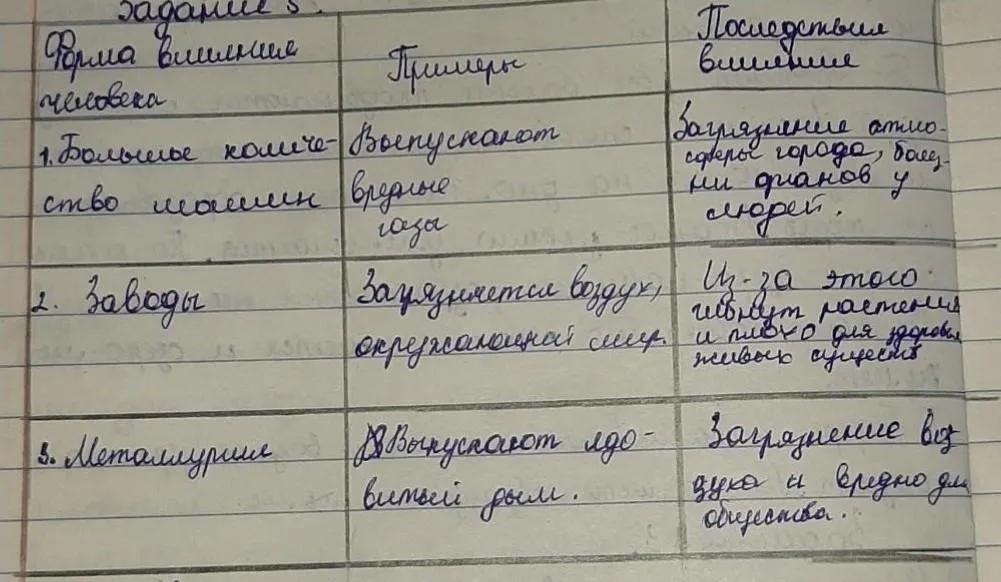 Задание 3.
Форма влияния
человека
Примеры
Последствия
влияния
1. Большое количе-
ство машин
Выпускают
вредные
газы
Загрязнение атмо-
сферы города, болез-
ни органов у
людей.
2. Заводы
Загрязняется воздух,
окружающий мир.
Из-за этого
гибнут растения
и плохо для здоровья
живых существ
3. Металлургия
Выпускают ядо-
витый дым.
Загрязнение воз-
духа и вредно для
общества.